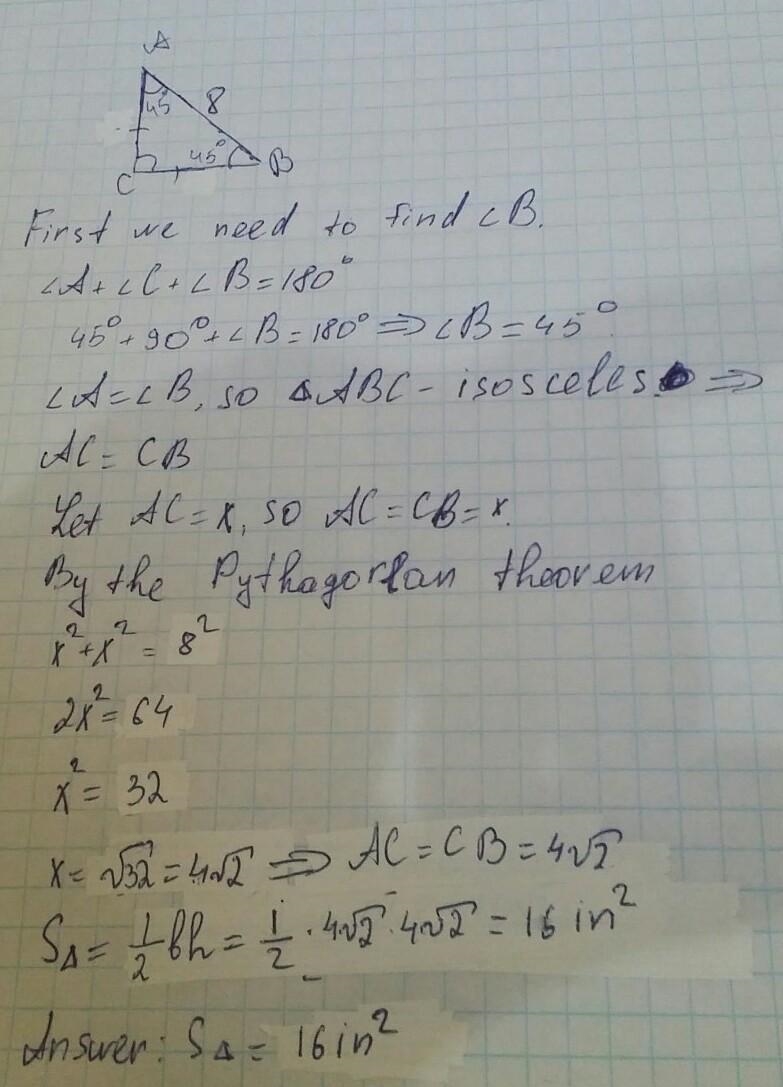 A
45° 8
45° B
C
First we need to find ∠B.
∠A+∠C+∠B=180°
45°+90°+∠B=180° ⇒ ∠B=45°.
∠A=∠B, so ΔABC - isosceles ⇒
AC = CB
Let AC=x, so AC=CB=x.
By the Pythagorean theorem
x²+x² = 8²
2x²= 64
x² = 32
x= √32 = 4√2 ⇒ AC = CB = 4√2
SΔ = 1/2 bh = 1/2 · 4√2 · 4√2 = 16 in²
Answer: SΔ = 16 in²